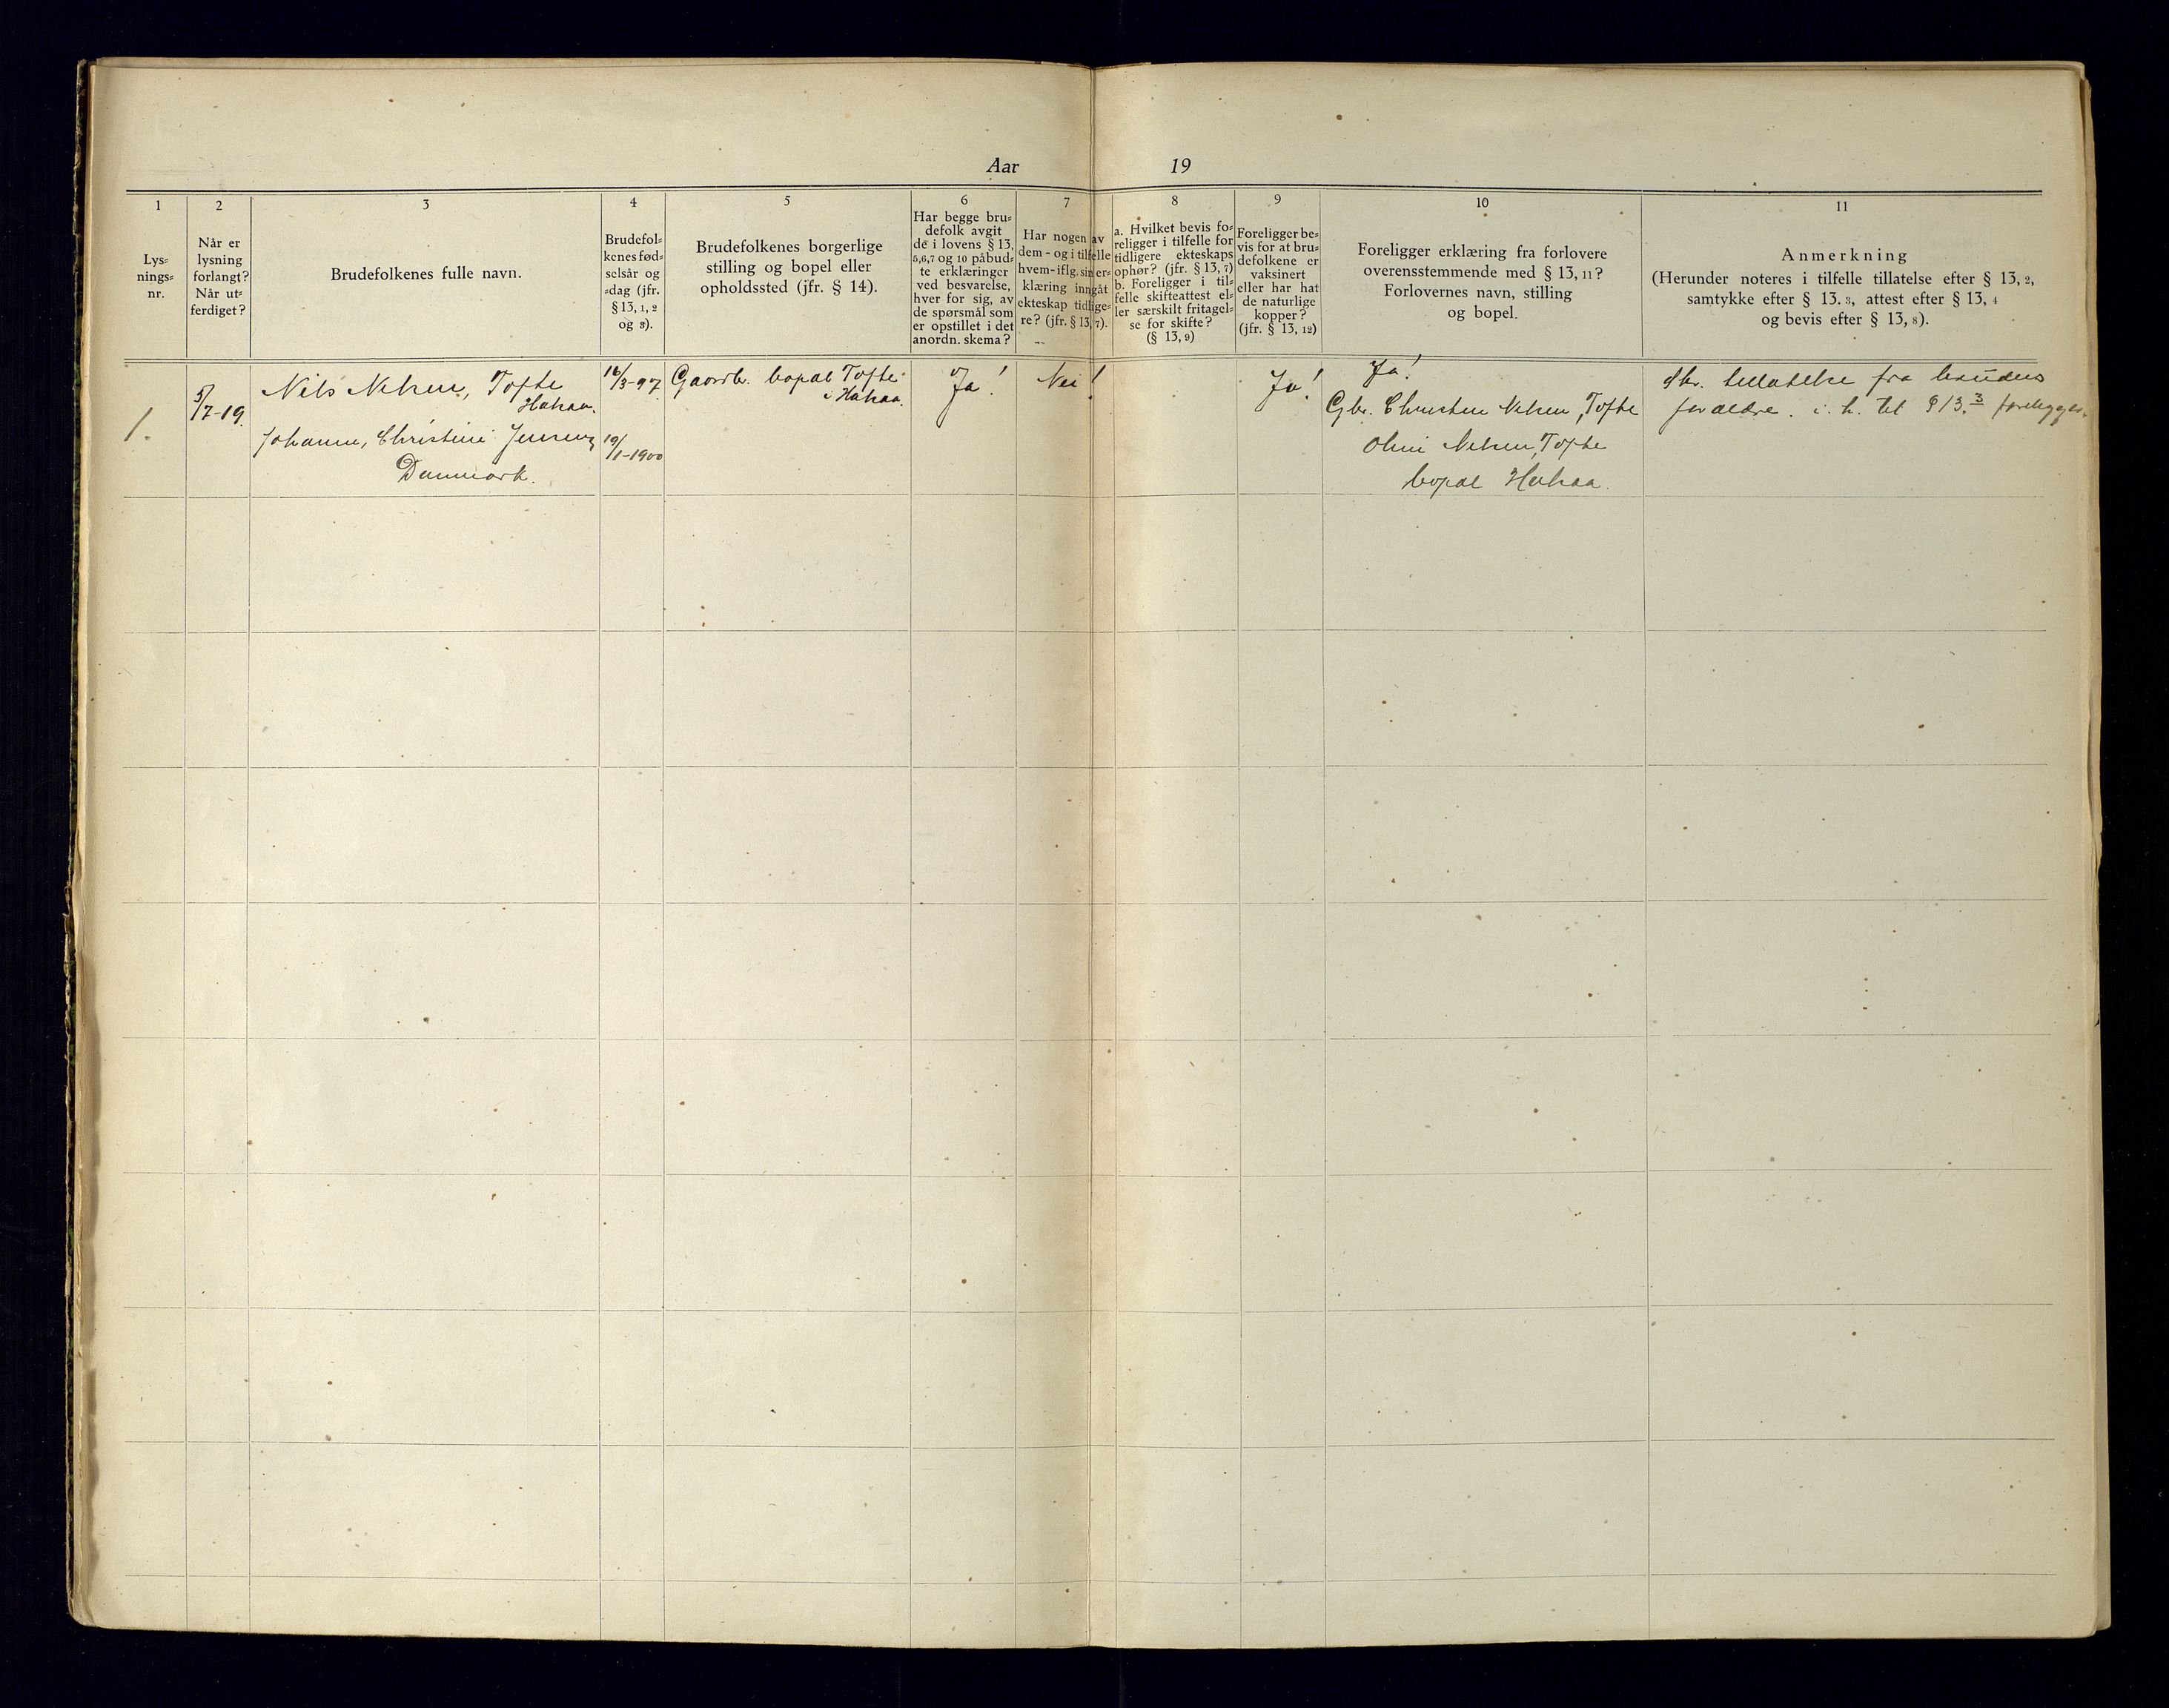 Aar 19
1
Lys-
nings-
nr.
2
Når er
lysning
forlangt?
Når ut-
ferdiget?
3
Brudefolkenes fulle navn.
4
Brudefol-
kenes fød-
selsår og
-dag (jfr.
§ 13, 1, 2
og 3).
5
Brudefolkenes borgerlige
stilling og bopel eller
opholdssted (jfr. § 14).
6
Har begge bru-
defolk avgit
de i lovens § 13,
5,6,7 og 10 påbud-
te erklæringer
ved besvarelse,
hver for sig, av
de spørsmål som
er opstillet i det
anordn. skema?
7
Har nogen av
dem - og i tilfelle
hvem - iflg. sin er-
klæring inngåt
ekteskap tidlige-
re? (jfr. § 13, 7).
8
a. Hvilket bevis fo-
religger i tilfelle for
tidligere ekteskaps
ophør? (jfr. § 13, 7)
b. Foreligger i til-
felle skifteattest el-
ler særskilt fritagel-
se for skifte?
(§ 13, 9)
9
Foreligger be-
vis for at bru-
defolkene er
vaksinert
eller har hat
de naturlige
kopper?
(jfr. § 13, 12)
10
Foreligger erklæring fra forlovere
overensstemmende med § 13, 11?
Forlovernes navn, stilling
og bopel.
11
Anmerkning
(Herunder noteres i tilfelle tillatelse efter § 13, 2,
samtykke efter § 13. 3, attest efter § 13, 4
og bevis efter § 13, 8).
1.
5/7-19.
Nils Nelsen, Tofte
Johanne, Christine Jensen
Danmark.
16/3-97
19/1-1900
Gaardbr. bopæl Tofte
i
Ja!
Nei!
Ja!
Ja!
Gbr. Christen Nelsen, Tofte
Nelsen, Tofte
bopæl
Skr. tillatelse fra brudens
forældre. i. h. til § 13.3 forelygges.